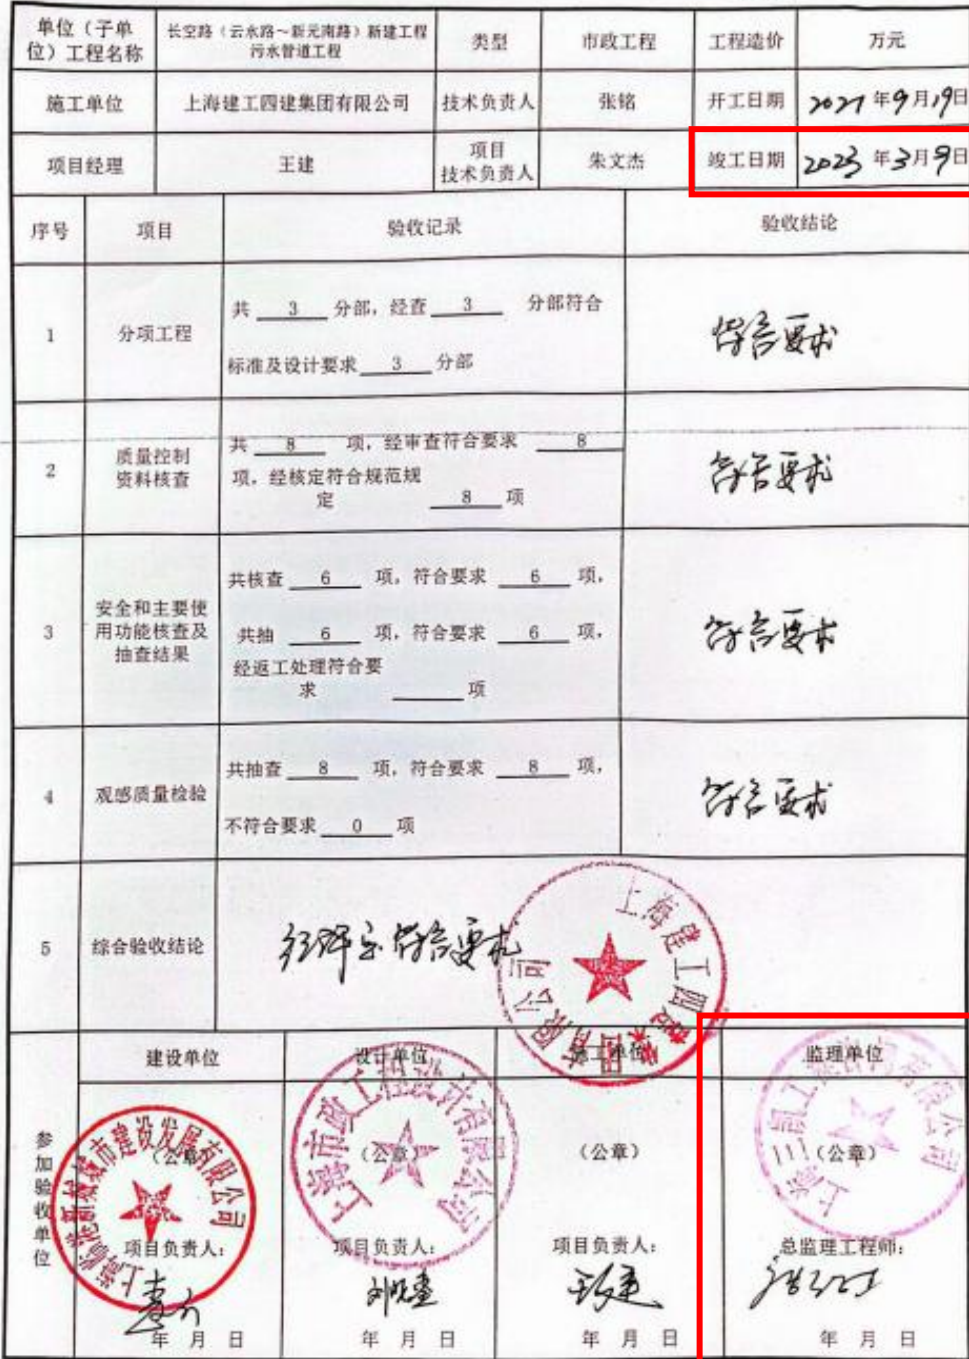 单位（子单位）工程名称 长空路（云水路～新元南路）新建工程污水管道工程 类型 市政工程 工程造价 万元
施工单位 上海建工四建集团有限公司 技术负责人 张铭 开工日期 2021年9月19日
项目经理 王建 项目技术负责人 朱文杰 竣工日期 2023年3月9日
序号 项目 验收记录 验收结论
1 分项工程
共 3 分部，经查 3 分部符合
标准及设计要求 3 分部
符合要求
2 质量控制资料核查
共 8 项，经审查符合要求 8
项，经核定符合规范规
定 8 项
符合要求
3 安全和主要使用功能核查及抽查结果
共核查 6 项，符合要求 6 项，
共抽 6 项，符合要求 6 项，
经返工处理符合要
求 项
符合要求
4 观感质量检验
共抽查 8 项，符合要求 8 项，
不符合要求 0 项
符合要求
5 综合验收结论
符合要求
上海建工四建集团有限公司
参加验收单位
建设单位 设计单位 施工单位 监理单位
（公章） （公章） （公章） （公章）
城市建设发展有限公司
上海市政工程设计有限公司
项目负责人： 项目负责人： 项目负责人： 总监理工程师：
年 月 日 年 月 日 年 月 日 年 月 日